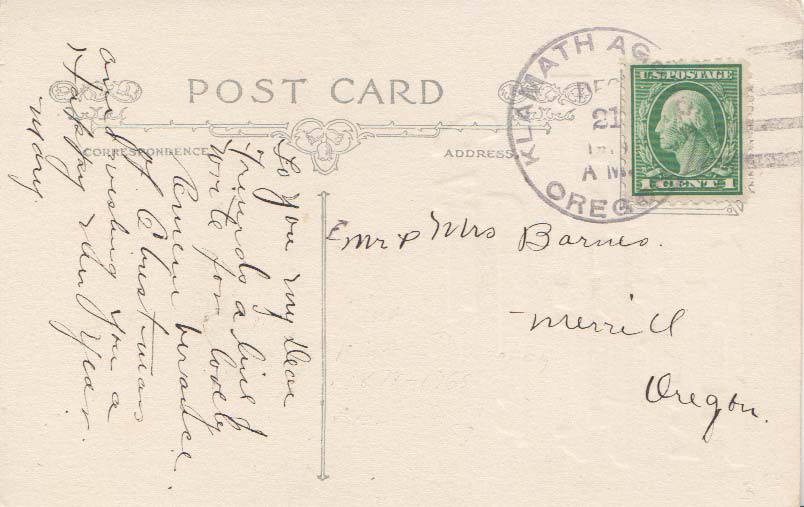 POST CARD
CORRESPONDENCE
ADDRESS
KLAMATH AG
DEC
21
A M.
OREG
U.S. POSTAGE
1 CENT 1
Mr & Mrs Barnes.
Merrill
Oregon.
To you my Dear
Friends a line I
write for
of Christmas
and wishing you a
Happy New Year.
Mary.